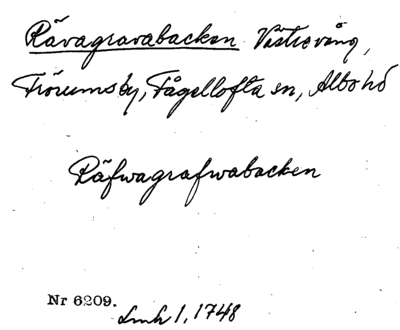 Rävagravabacken Västrevång,
Fröumsby, Fågeltofta sn, Albo hd
Räfwagrafwabacken
Nr 6209.
Lmh 1, 1748